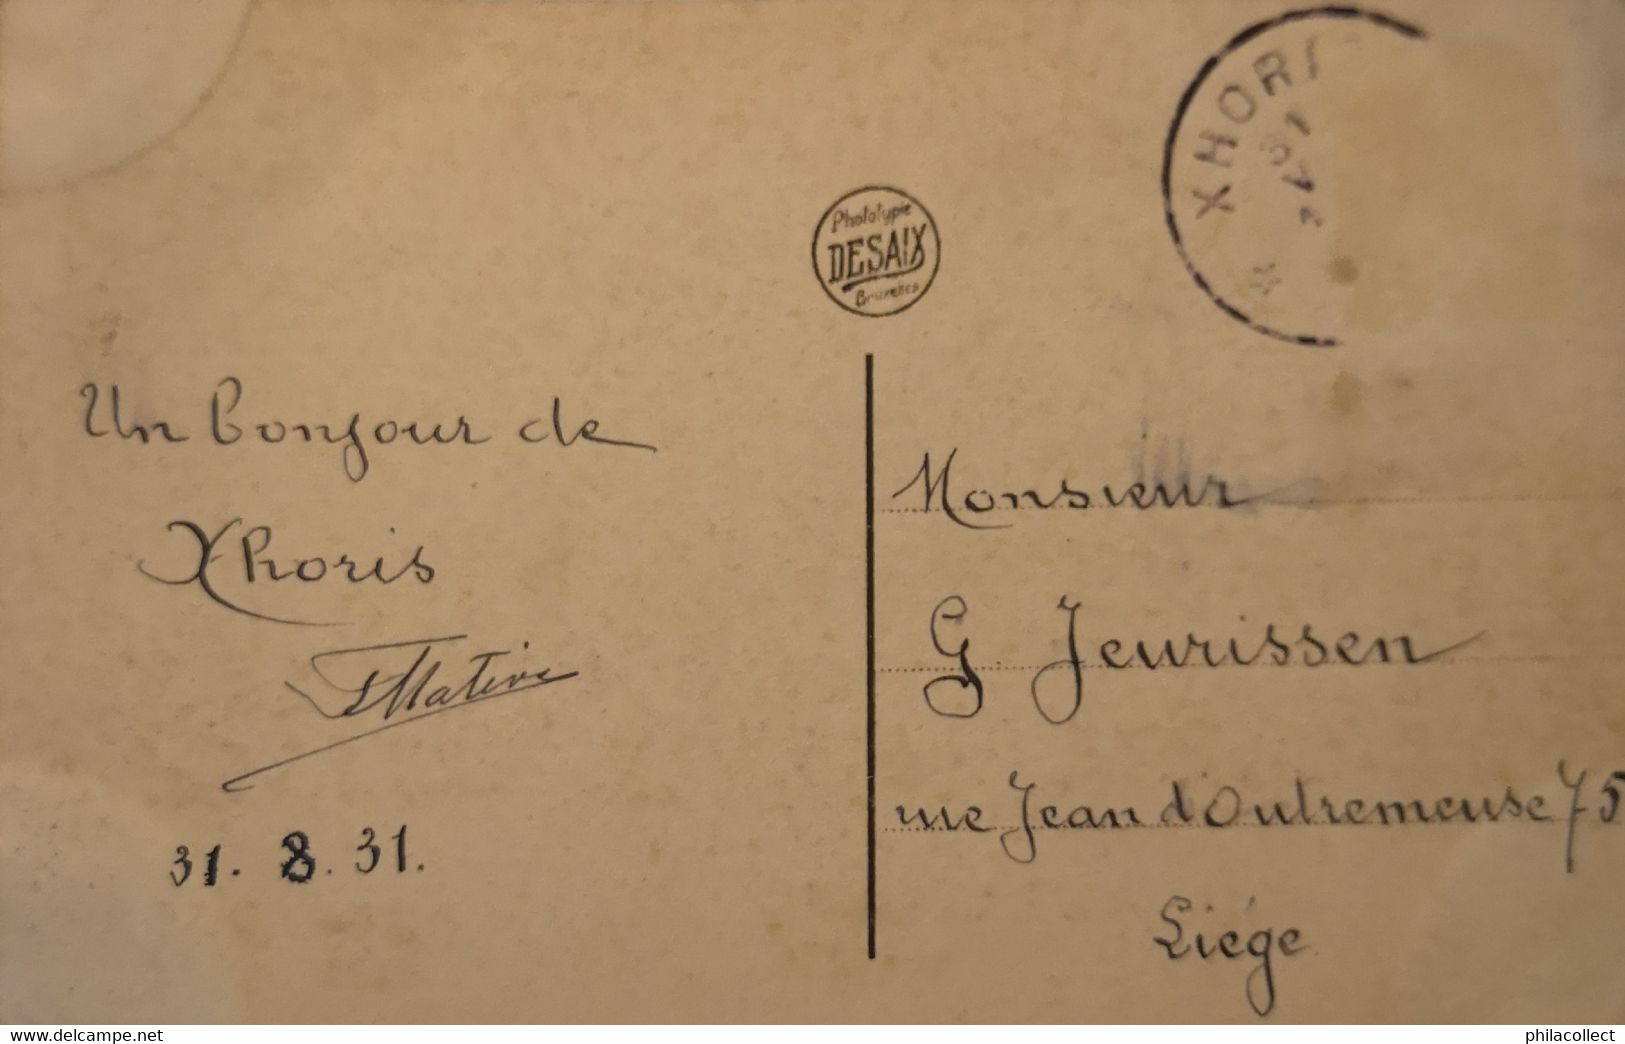 XHORI
Phototypie
DESAIX
Bruxelles
Un bonjour de
Xhoris
31. 8. 31.
Monsieur
G Jeurissen
rue Jean d'Outremeuse 75
Liége
www.delcampe.net
philacollect